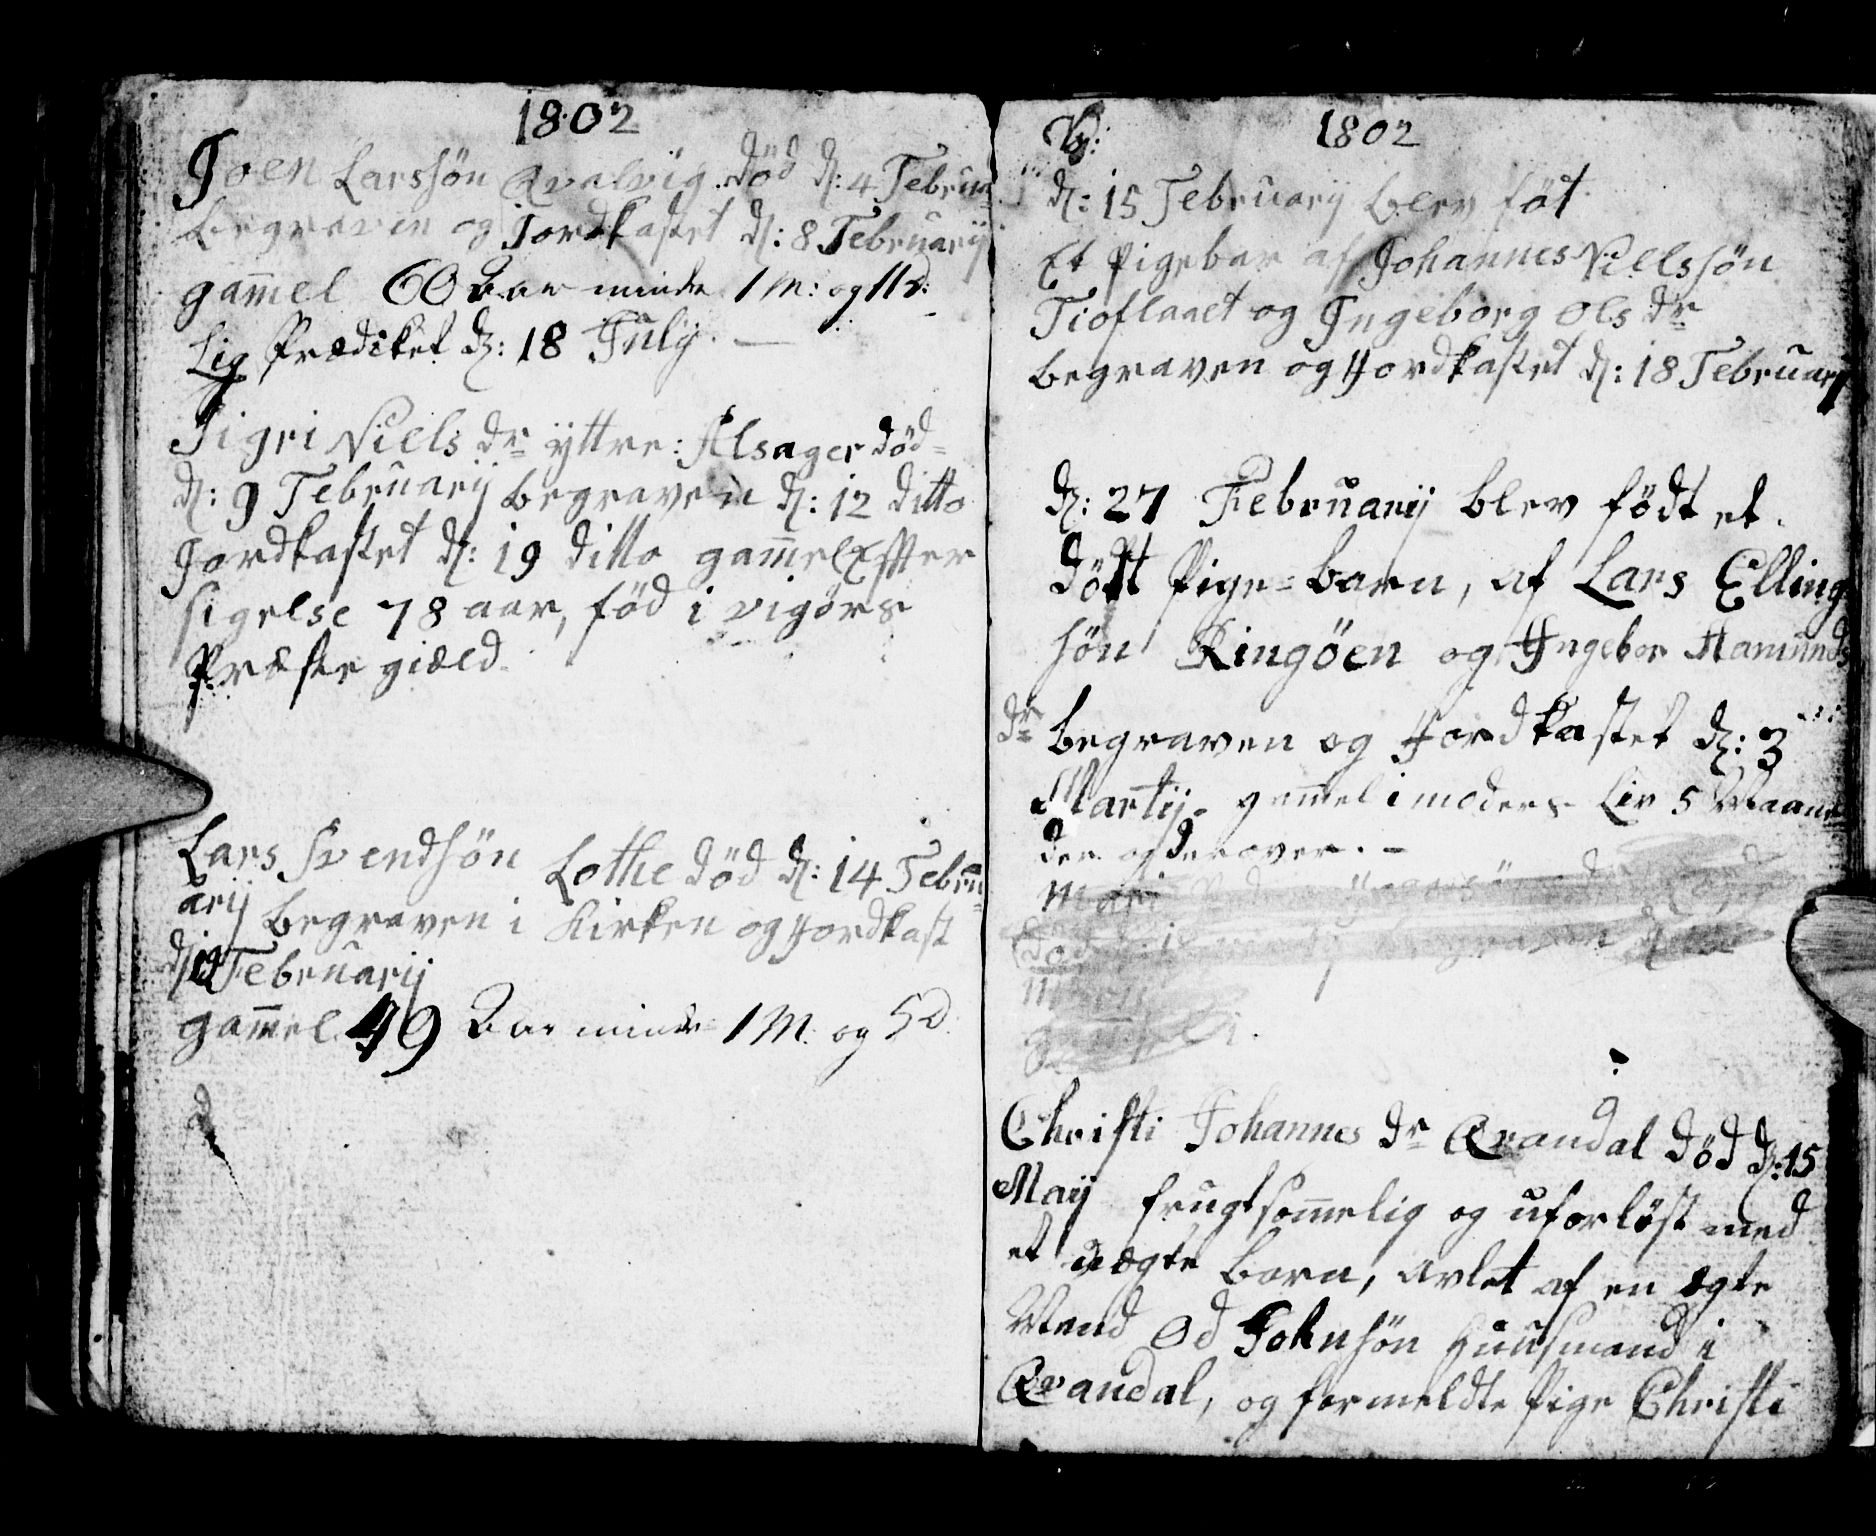 1802
Joen Larssön Qvalvig død d: 4 Februa
begraven og Jordkastet d: 8 Februarij
gam̄el 60 Aar minde 1 M: og 11 d:
Lig Prædiket d: 18 July. —
Sigri Niels dr yttre: Alsager død
d: 9 Februarij begraven d: 12 ditto
Jordkastet d: 19 ditto gam̄el Effter
sigelse 78 aar, fød i vigørs
Præste giæld.
Lars Svendsön Lothe død d: 14 Febru
arij begraven i Kirken og Jordkast
d: Februarij
gam̄el 49 Aar minde 1 M. og 5 d.
1802
d: 15 Februarij blev föt
Et Pigebar af Johannes Nielssön
Tioflaaet og Ingeborg Ols dr
begraven og Jordkastet d: 18 Februarij
d: 27 Februarij blev födt et
dödt Pige=barn, af Lars Elling
sön Ringöen og Ingebor Aamunds
dr begraven og Jordkastet d: 3
Martij. gam̄el i moders Liv 5 Maane
der og derover. —
Mari
Christi Johannes dr Qvandal død d: 15
Maij frugtsom̄elig og uforløst med
et uægte barn, avlet af en ægte
Mand Od Johnsön Huusmand i
Qvandal, og formeldte Pige Christi